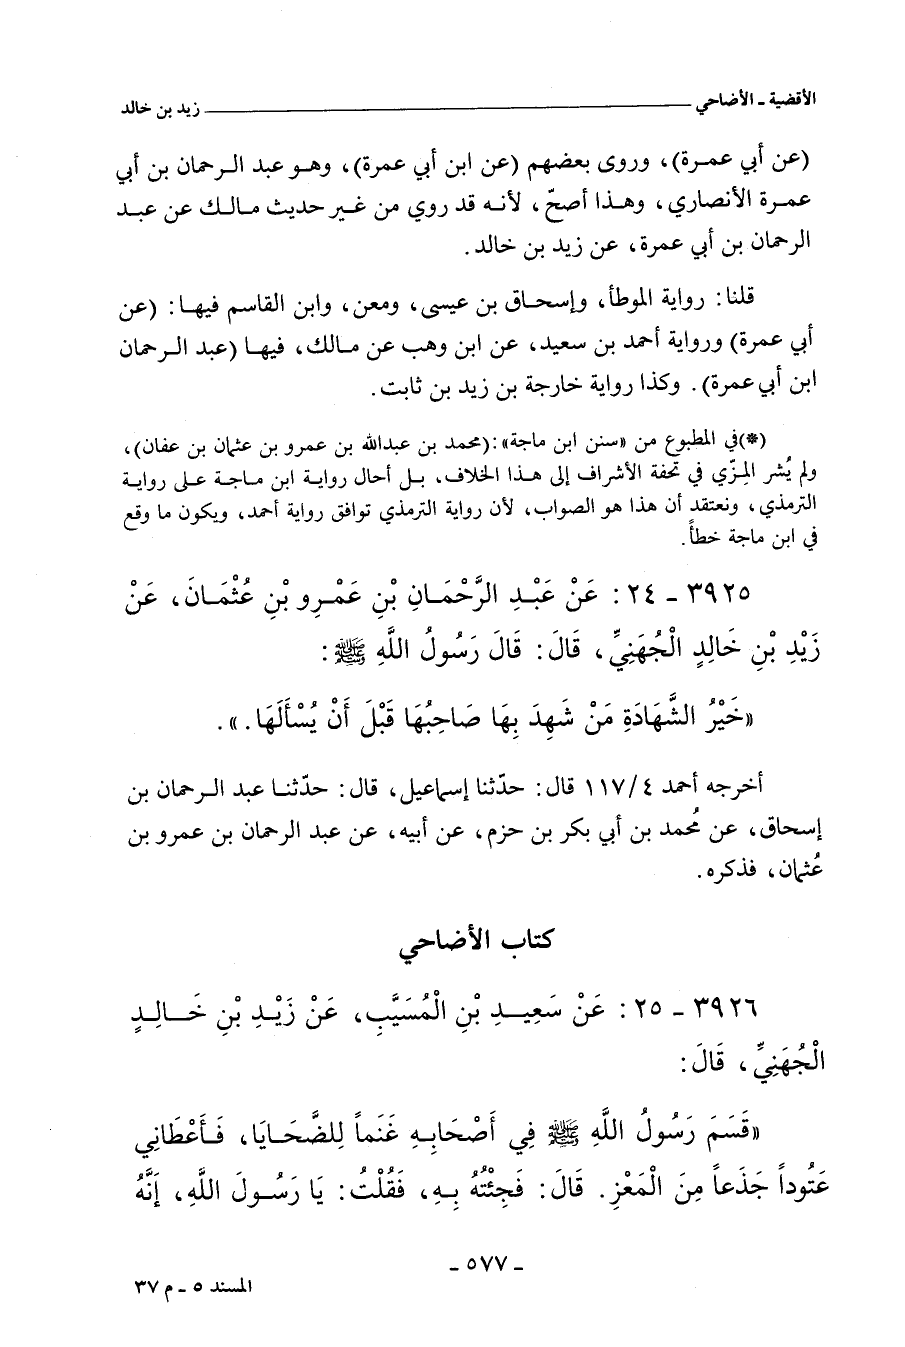 الأقضية ـ الأضاحي ــــــــــــــــــــ زيد بن خالد
(عن أبي عمرة)، وروى بعضهم (عن ابن أبي عمرة)، وهو عبد الرحمان بن أبي
عمرة الأنصاري، وهذا أصحّ، لأنه قد روي من غير حديث مالك عن عبد
الرحمان بن أبي عمرة، عن زيد بن خالد.
قلنا: رواية الموطأ، وإسحاق بن عيسى، ومعن، وابن القاسم فيها: (عن
أبي عمرة) ورواية أحمد بن سعيد، عن ابن وهب عن مالك، فيها (عبد الرحمان
ابن أبي عمرة). وكذا رواية خارجة بن زيد بن ثابت.
(*)في المطبوع من «سنن ابن ماجة»:(محمد بن عبدالله بن عمرو بن عثمان بن عفان)،
ولم يُشر المِزّي في تحفة الأشراف إلى هذا الخلاف، بل أحال رواية ابن ماجة على رواية
الترمذي، ونعتقد أن هذا هو الصواب، لأن رواية الترمذي توافق رواية أحمد، ويكون ما وقع
في ابن ماجة خطأ.
٣٩٢٥ ـ ٢٤: عَنْ عَبْدِ الرَّحْمَانِ بْنِ عَمْرِو بْنِ عُثْمَانَ، عَنْ
زَيْدِ بْنِ خَالِدٍ الْجُهَنِيِّ، قَالَ: قَالَ رَسُولُ اللَّهِ ﷺ:
«خَيْرُ الشَّهَادَةِ مَنْ شَهِدَ بِهَا صَاحِبُهَا قَبْلَ أَنْ يُسْأَلَهَا.».
أخرجه أحمد ٤/ ١١٧ قال: حدّثنا إسماعيل، قال: حدّثنا عبد الرحمان بن
إسحاق، عن مُحمد بن أبي بكر بن حزم، عن أبيه، عن عبد الرحمان بن عمرو بن
عُثمان، فذكره.
كتاب الأضاحي
٣٩٢٦ ـ ٢٥: عَنْ سَعِيدِ بْنِ الْمُسَيَّبِ، عَنْ زَيْدِ بْنِ خَالِدٍ
الْجُهَنِيِّ، قَالَ:
«قَسَمَ رَسُولُ اللَّهِ ﷺ فِي أَصْحَابِهِ غَنَماً لِلضَّحَايَا، فَأَعْطَانِي
عَتُوداً جَذَعاً مِنَ الْمَعْزِ. قَالَ: فَجِئْتُهُ بِهِ، فَقُلْتُ: يَا رَسُولَ اللَّهِ، إِنَّهُ
ـ ٥٧٧ ـ
المسند ٥ ـ م ٣٧